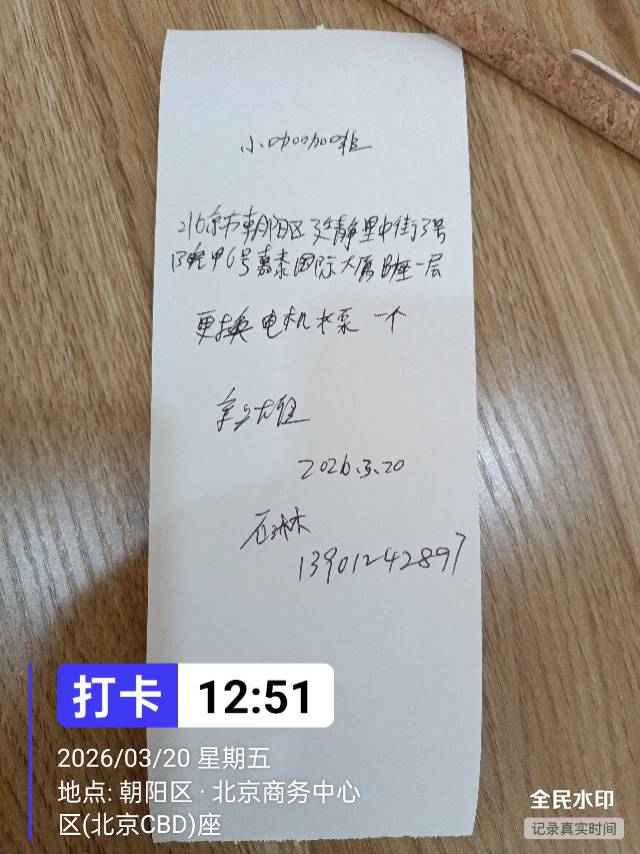 小咖咖啡
北京市朝阳区延静里中街3号
13幢甲6号嘉泰国际大厦B座一层
更换电机水泵一个
2026.3.20
石琳
13901242897
打卡 12:51
2026/03/20 星期五
地点: 朝阳区 · 北京商务中心
区(北京CBD)座
全民水印
记录真实时间